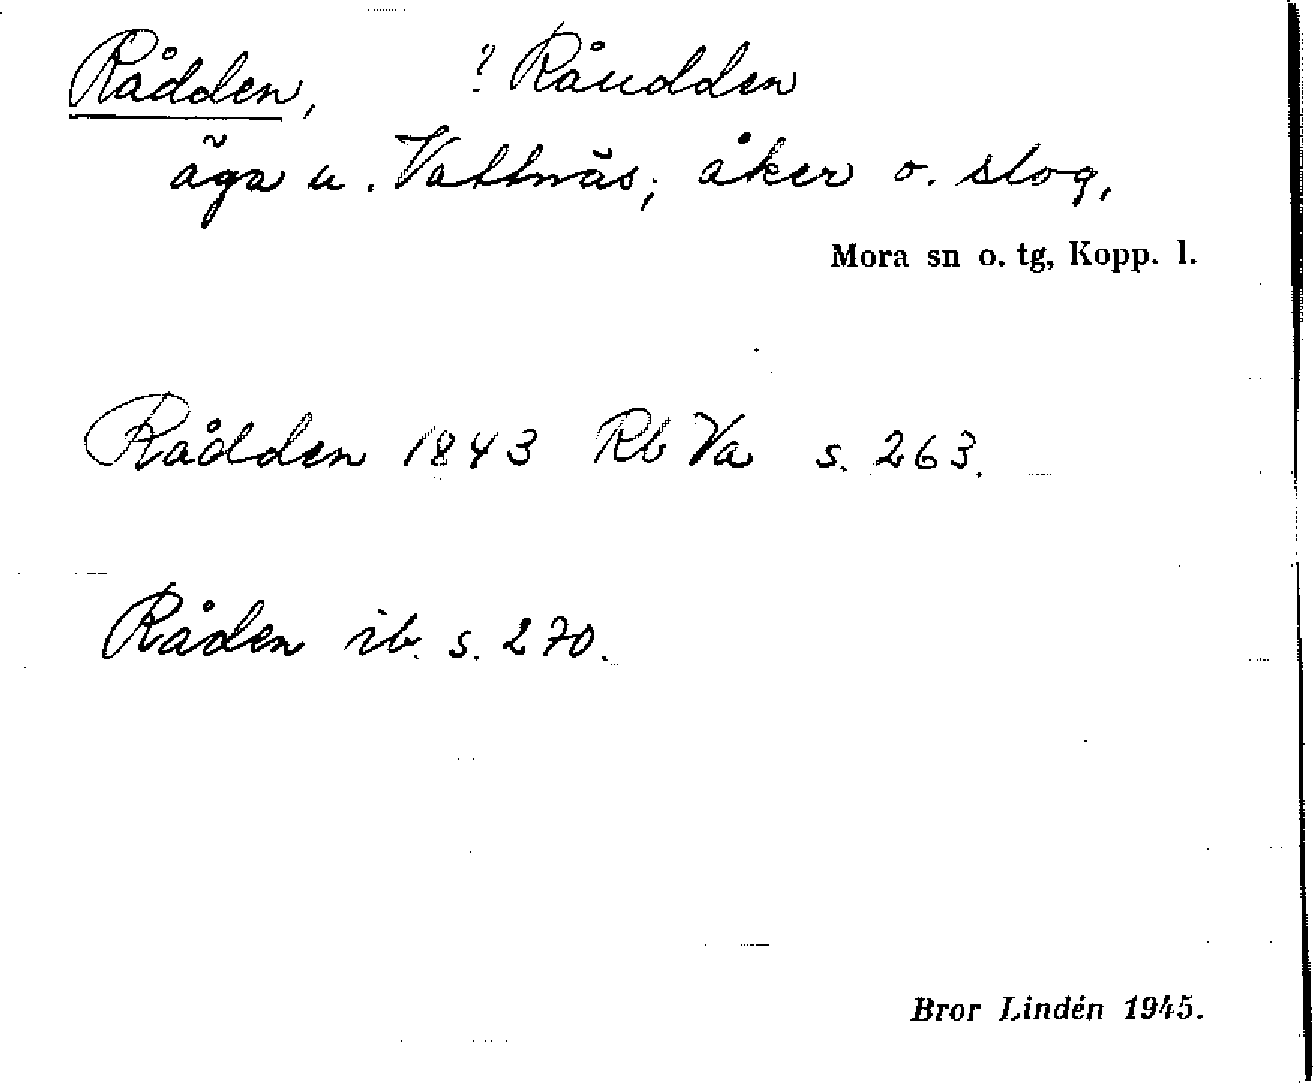 Rådden, ? Råudden
äga u. Vattnäs; åker o. slog,
Mora sn o. tg, Kopp. l.
Rådden 1843 Rb Va s. 263.
Råden ib. s. 270.
Bror Lindén 1945.